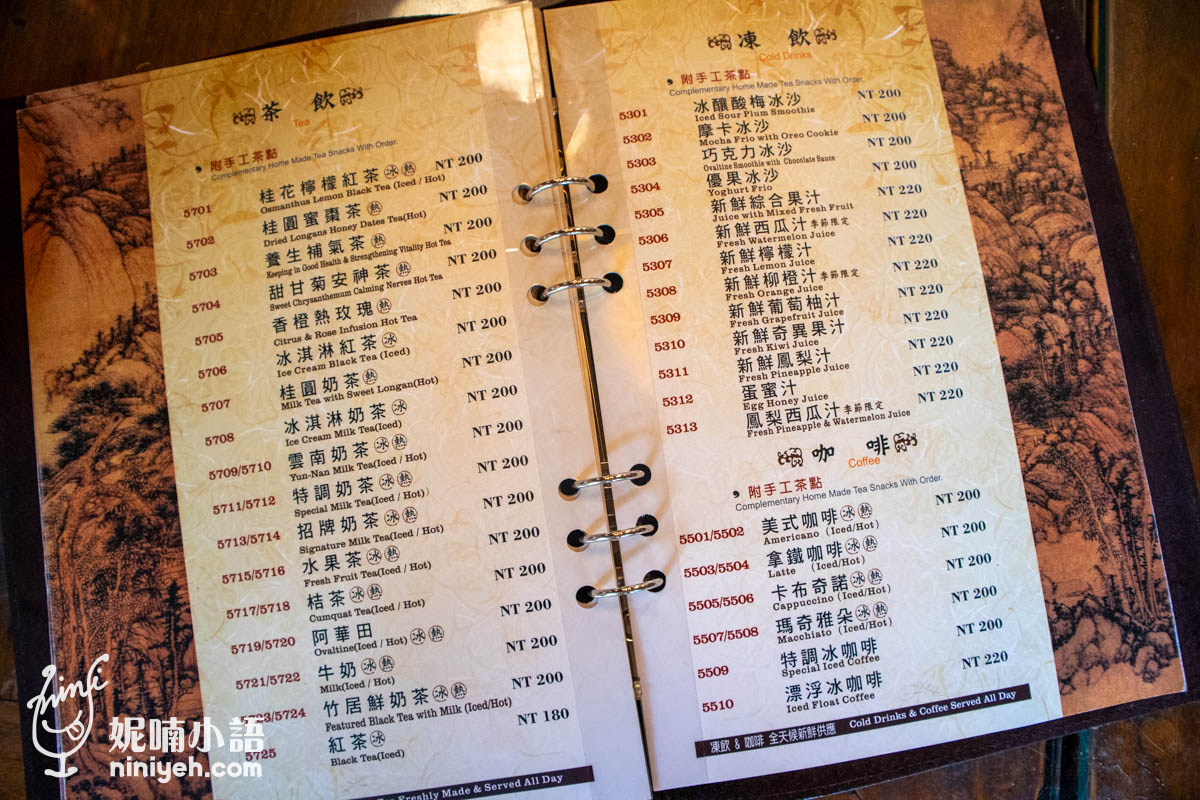 茶 飲
Tea
附手工茶點
Complementary Home Made Tea Snacks With Order.
5701 桂花檸檬紅茶 冰 熱 NT 200
Osmanthus Lemon Black Tea (Iced / Hot)
5702 桂圓蜜棗茶 熱 NT 200
Dried Longans Honey Dates Tea(Hot)
5703 養生補氣茶 熱 NT 200
Keeping in Good Health & Strengthening Vitality Hot Tea
5704 甜甘菊安神茶 熱 NT 200
Sweet Chrysanthemum Calming Nerves Hot Tea
5705 香橙熱玫瑰 熱 NT 200
Citrus & Rose Infusion Hot Tea
5706 冰淇淋紅茶 冰 NT 200
Ice Cream Black Tea (Iced)
5707 桂圓奶茶 熱 NT 200
Milk Tea with Sweet Longan(Hot)
5708 冰淇淋奶茶 冰 NT 200
Ice Cream Milk Tea(Iced)
5709/5710 雲南奶茶 冰 熱 NT 200
Yun-Nan Milk Tea(Iced / Hot)
5711/5712 特調奶茶 冰 熱 NT 200
Special Milk Tea(Iced / Hot)
5713/5714 招牌奶茶 冰 熱 NT 200
Signature Milk Tea(Iced / Hot)
5715/5716 水果茶 冰 熱 NT 200
Fresh Fruit Tea(Iced / Hot)
5717/5718 桔茶 冰 熱 NT 200
Cumquat Tea(Iced / Hot)
5719/5720 阿華田 冰 熱 NT 200
Ovaltine(Iced / Hot)
5721/5722 牛奶 冰 熱 NT 200
Milk(Iced / Hot)
5724 竹居鮮奶茶 冰 熱 NT 200
Featured Black Tea with Milk (Iced/Hot)
5725 紅茶 冰 NT 180
Black Tea(Iced)
Freshly Made & Served All Day
凍 飲
Cold Drinks
附手工茶點
Complementary Home Made Tea Snacks With Order.
5301 冰釀酸梅冰沙 NT 200
Iced Sour Plum Smoothie
5302 摩卡冰沙 NT 200
Mocha Frio with Oreo Cookie
5303 巧克力冰沙 NT 200
Ovaltine Smoothie with Chocolate Sauce
5304 優果冰沙 NT 200
Yoghurt Frio
5305 新鮮綜合果汁 NT 220
Juice with Mixed Fresh Fruit
5306 新鮮西瓜汁 季節限定 NT 220
Fresh Watermelon Juice
5307 新鮮檸檬汁 NT 220
Fresh Lemon Juice
5308 新鮮柳橙汁 季節限定 NT 220
Fresh Orange Juice
5309 新鮮葡萄柚汁 NT 220
Fresh Grapefruit Juice
5310 新鮮奇異果汁 NT 220
Fresh Kiwi Juice
5311 新鮮鳳梨汁 NT 220
Fresh Pineapple Juice
5312 蛋蜜汁 NT 220
Egg Honey Juice
5313 鳳梨西瓜汁 季節限定 NT 220
Fresh Pineapple & Watermelon Juice
咖 啡
Coffee
附手工茶點
Complementary Home Made Tea Snacks With Order.
5501/5502 美式咖啡 冰 熱 NT 200
Americano (Iced/Hot)
5503/5504 拿鐵咖啡 冰 熱 NT 200
Latte (Iced/Hot)
5505/5506 卡布奇諾 冰 熱 NT 200
Cappuccino (Iced/Hot)
5507/5508 瑪奇雅朵 冰 熱 NT 200
Macchiato (Iced/Hot)
5509 特調冰咖啡 NT 200
Special Iced Coffee
5510 漂浮冰咖啡 NT 220
Iced Float Coffee
凍飲 & 咖啡 全天候新鮮供應 Cold Drinks & Coffee Served All Day
nini
妮喃小語
niniyeh.com